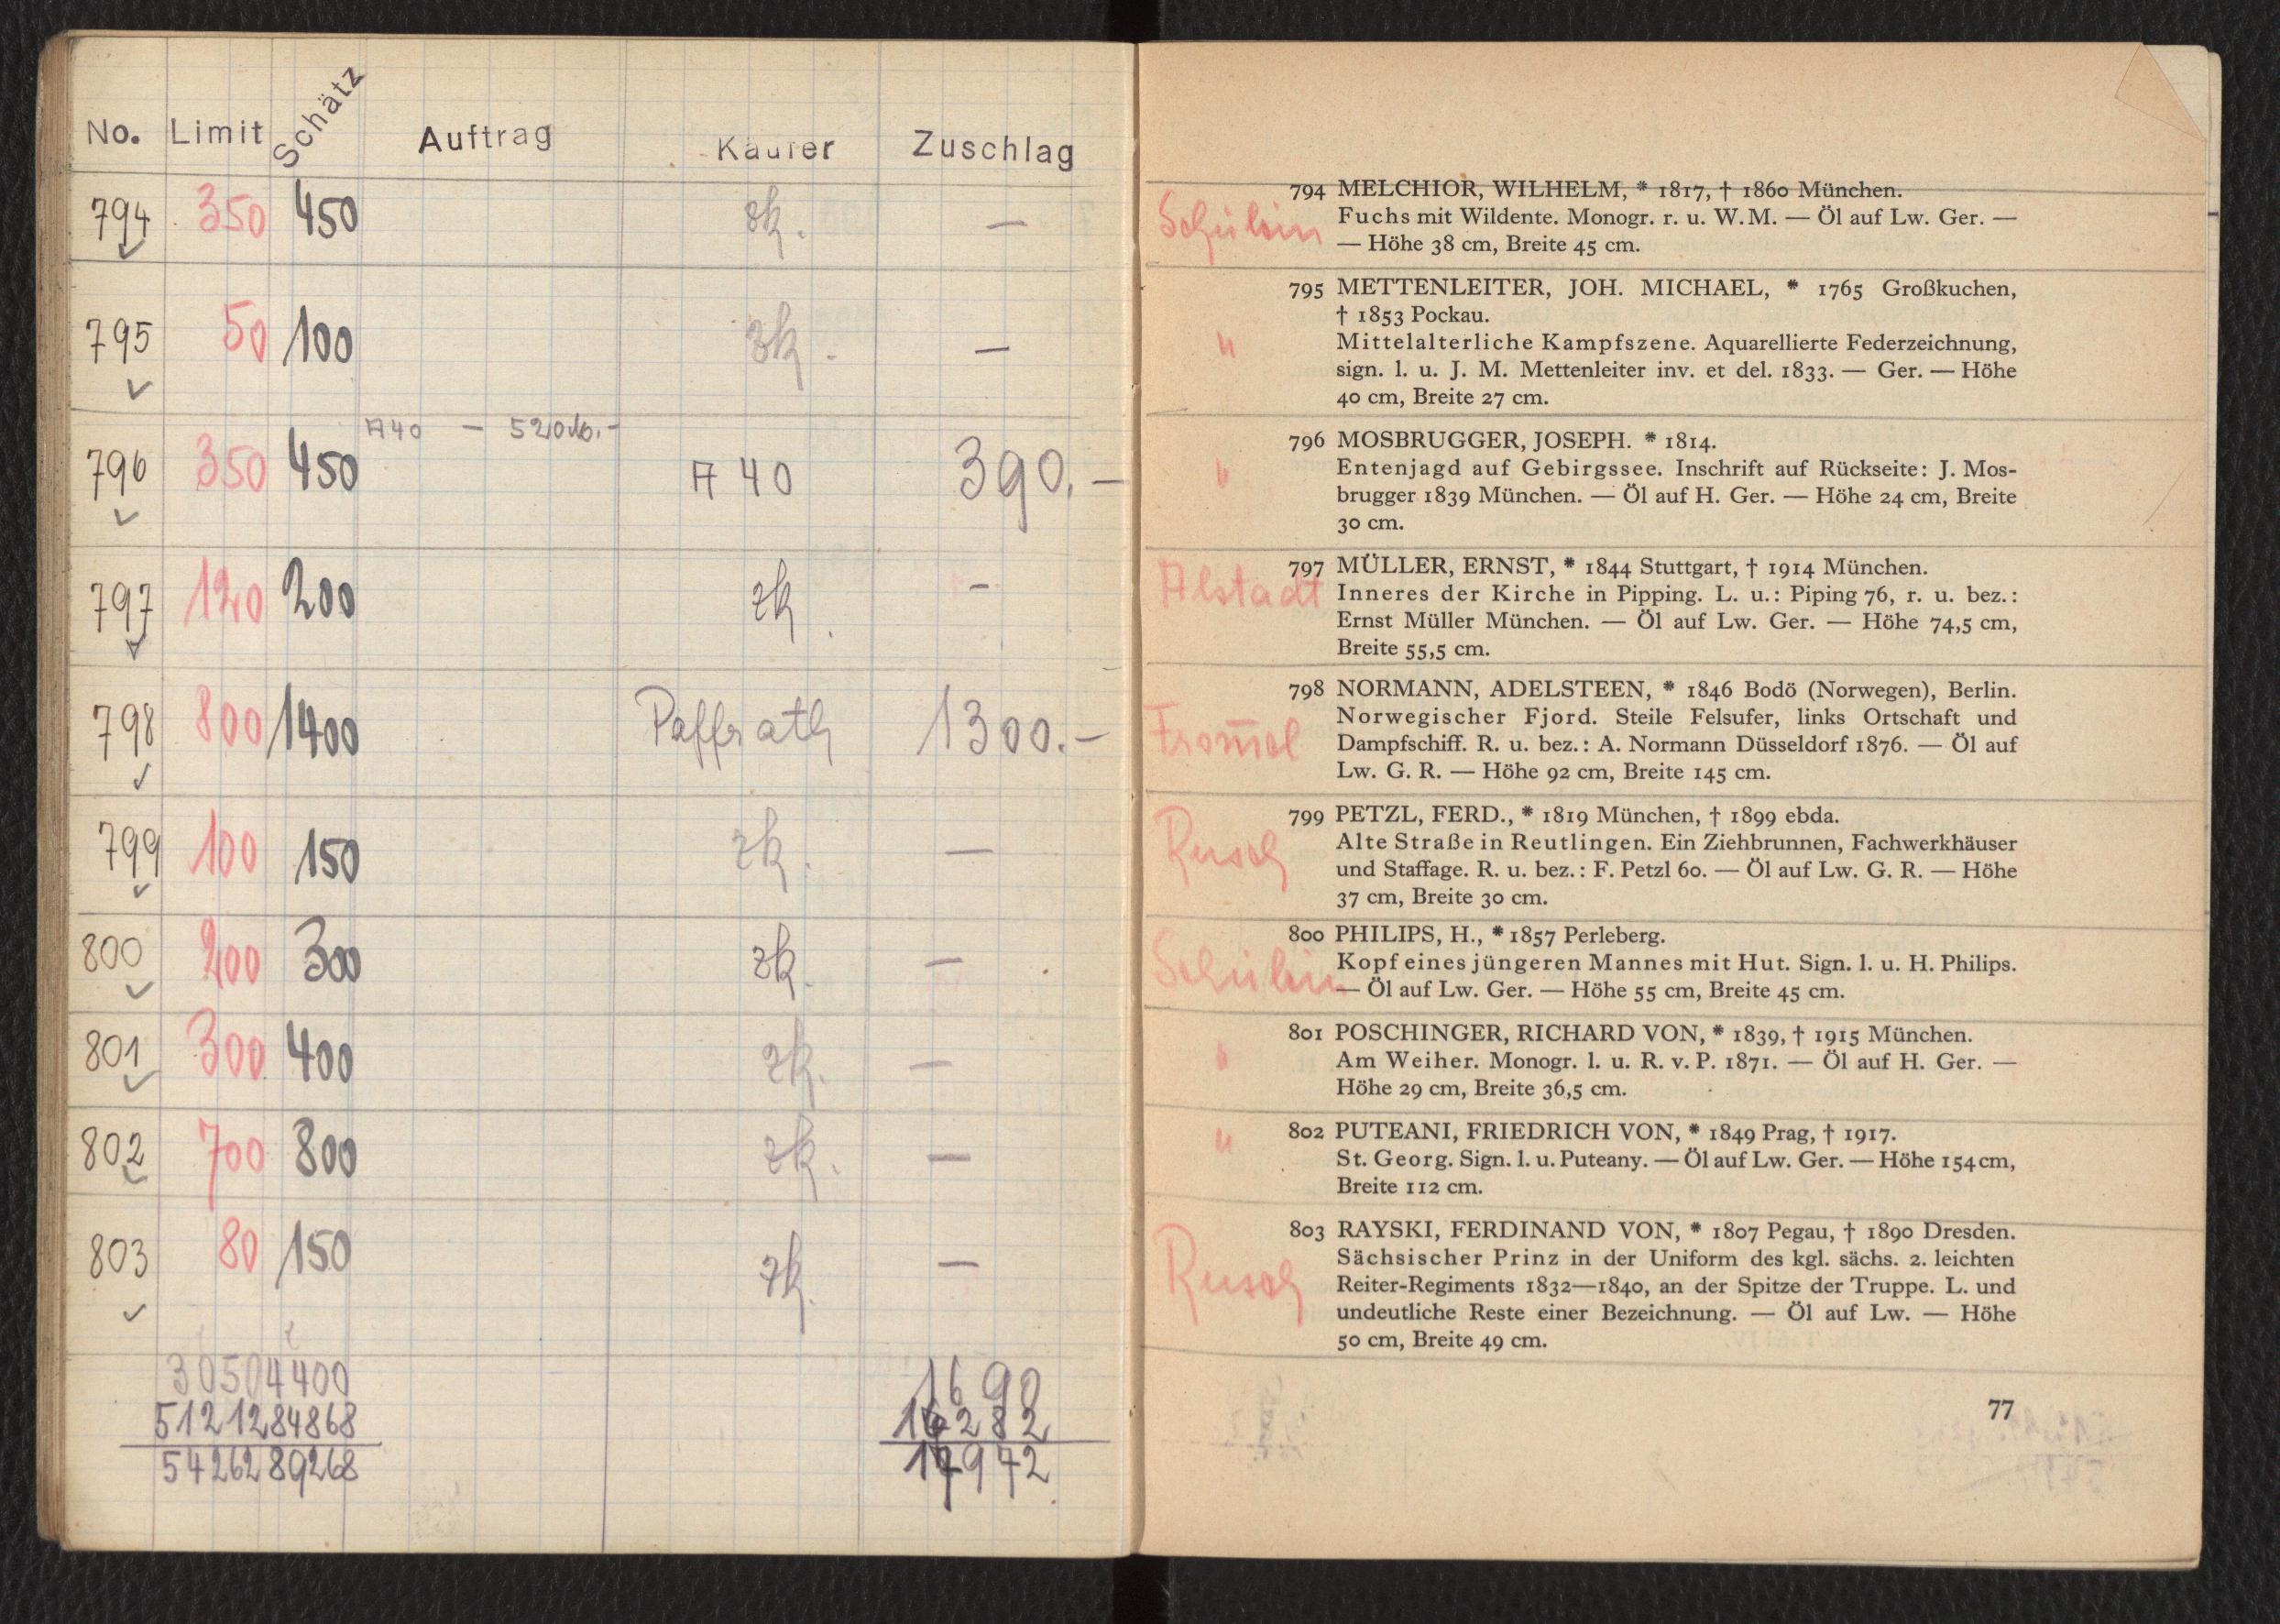 No. Limit Schätz Auftrag Käufer Zuschlag
794 350 450 zk. —
795 50 100 zk. —
A 40 — 520 M.-
796 350 450 A 40 390.—
797 120 200 zk. -
798 800 1400 Paffrath 1300.—
799 100 150 zk. —
800 200 300 zk. —
801 300 400 zk. —
802 700 800 zk. —
803 80 150 zk. —
3050 4400 1690
51212 84868 16282
54262 89268 17972
794 MELCHIOR, WILHELM, * 1817, † 1860 München.
Schülein Fuchs mit Wildente. Monogr. r. u. W.M. — Öl auf Lw. Ger. —
— Höhe 38 cm, Breite 45 cm.
795 METTENLEITER, JOH. MICHAEL, * 1765 Großkuchen,
† 1853 Pockau.
" Mittelalterliche Kampfszene. Aquarellierte Federzeichnung,
sign. l. u. J. M. Mettenleiter inv. et del. 1833. — Ger. — Höhe
40 cm, Breite 27 cm.
796 MOSBRUGGER, JOSEPH. * 1814.
" Entenjagd auf Gebirgssee. Inschrift auf Rückseite: J. Mos-
brugger 1839 München. — Öl auf H. Ger. — Höhe 24 cm, Breite
30 cm.
797 MÜLLER, ERNST, * 1844 Stuttgart, † 1914 München.
Alstadt Inneres der Kirche in Pipping. L. u.: Piping 76, r. u. bez.:
Ernst Müller München. — Öl auf Lw. Ger. — Höhe 74,5 cm,
Breite 55,5 cm.
798 NORMANN, ADELSTEEN, * 1846 Bodö (Norwegen), Berlin.
Norwegischer Fjord. Steile Felsufer, links Ortschaft und
From̅el Dampfschiff. R. u. bez.: A. Normann Düsseldorf 1876. — Öl auf
Lw. G. R. — Höhe 92 cm, Breite 145 cm.
799 PETZL, FERD., * 1819 München, † 1899 ebda.
Rusch Alte Straße in Reutlingen. Ein Ziehbrunnen, Fachwerkhäuser
und Staffage. R. u. bez.: F. Petzl 60. — Öl auf Lw. G. R. — Höhe
37 cm, Breite 30 cm.
800 PHILIPS, H., * 1857 Perleberg.
Schülein Kopf eines jüngeren Mannes mit Hut. Sign. l. u. H. Philips.
— Öl auf Lw. Ger. — Höhe 55 cm, Breite 45 cm.
801 POSCHINGER, RICHARD VON, * 1839, † 1915 München.
" Am Weiher. Monogr. l. u. R. v. P. 1871. — Öl auf H. Ger. —
Höhe 29 cm, Breite 36,5 cm.
" 802 PUTEANI, FRIEDRICH VON, * 1849 Prag, † 1917.
St. Georg. Sign. l. u. Puteany. — Öl auf Lw. Ger. — Höhe 154 cm,
Breite 112 cm.
803 RAYSKI, FERDINAND VON, * 1807 Pegau, † 1890 Dresden.
Sächsischer Prinz in der Uniform des kgl. sächs. 2. leichten
Rusch Reiter-Regiments 1832—1840, an der Spitze der Truppe. L. und
undeutliche Reste einer Bezeichnung. — Öl auf Lw. — Höhe
50 cm, Breite 49 cm.
77